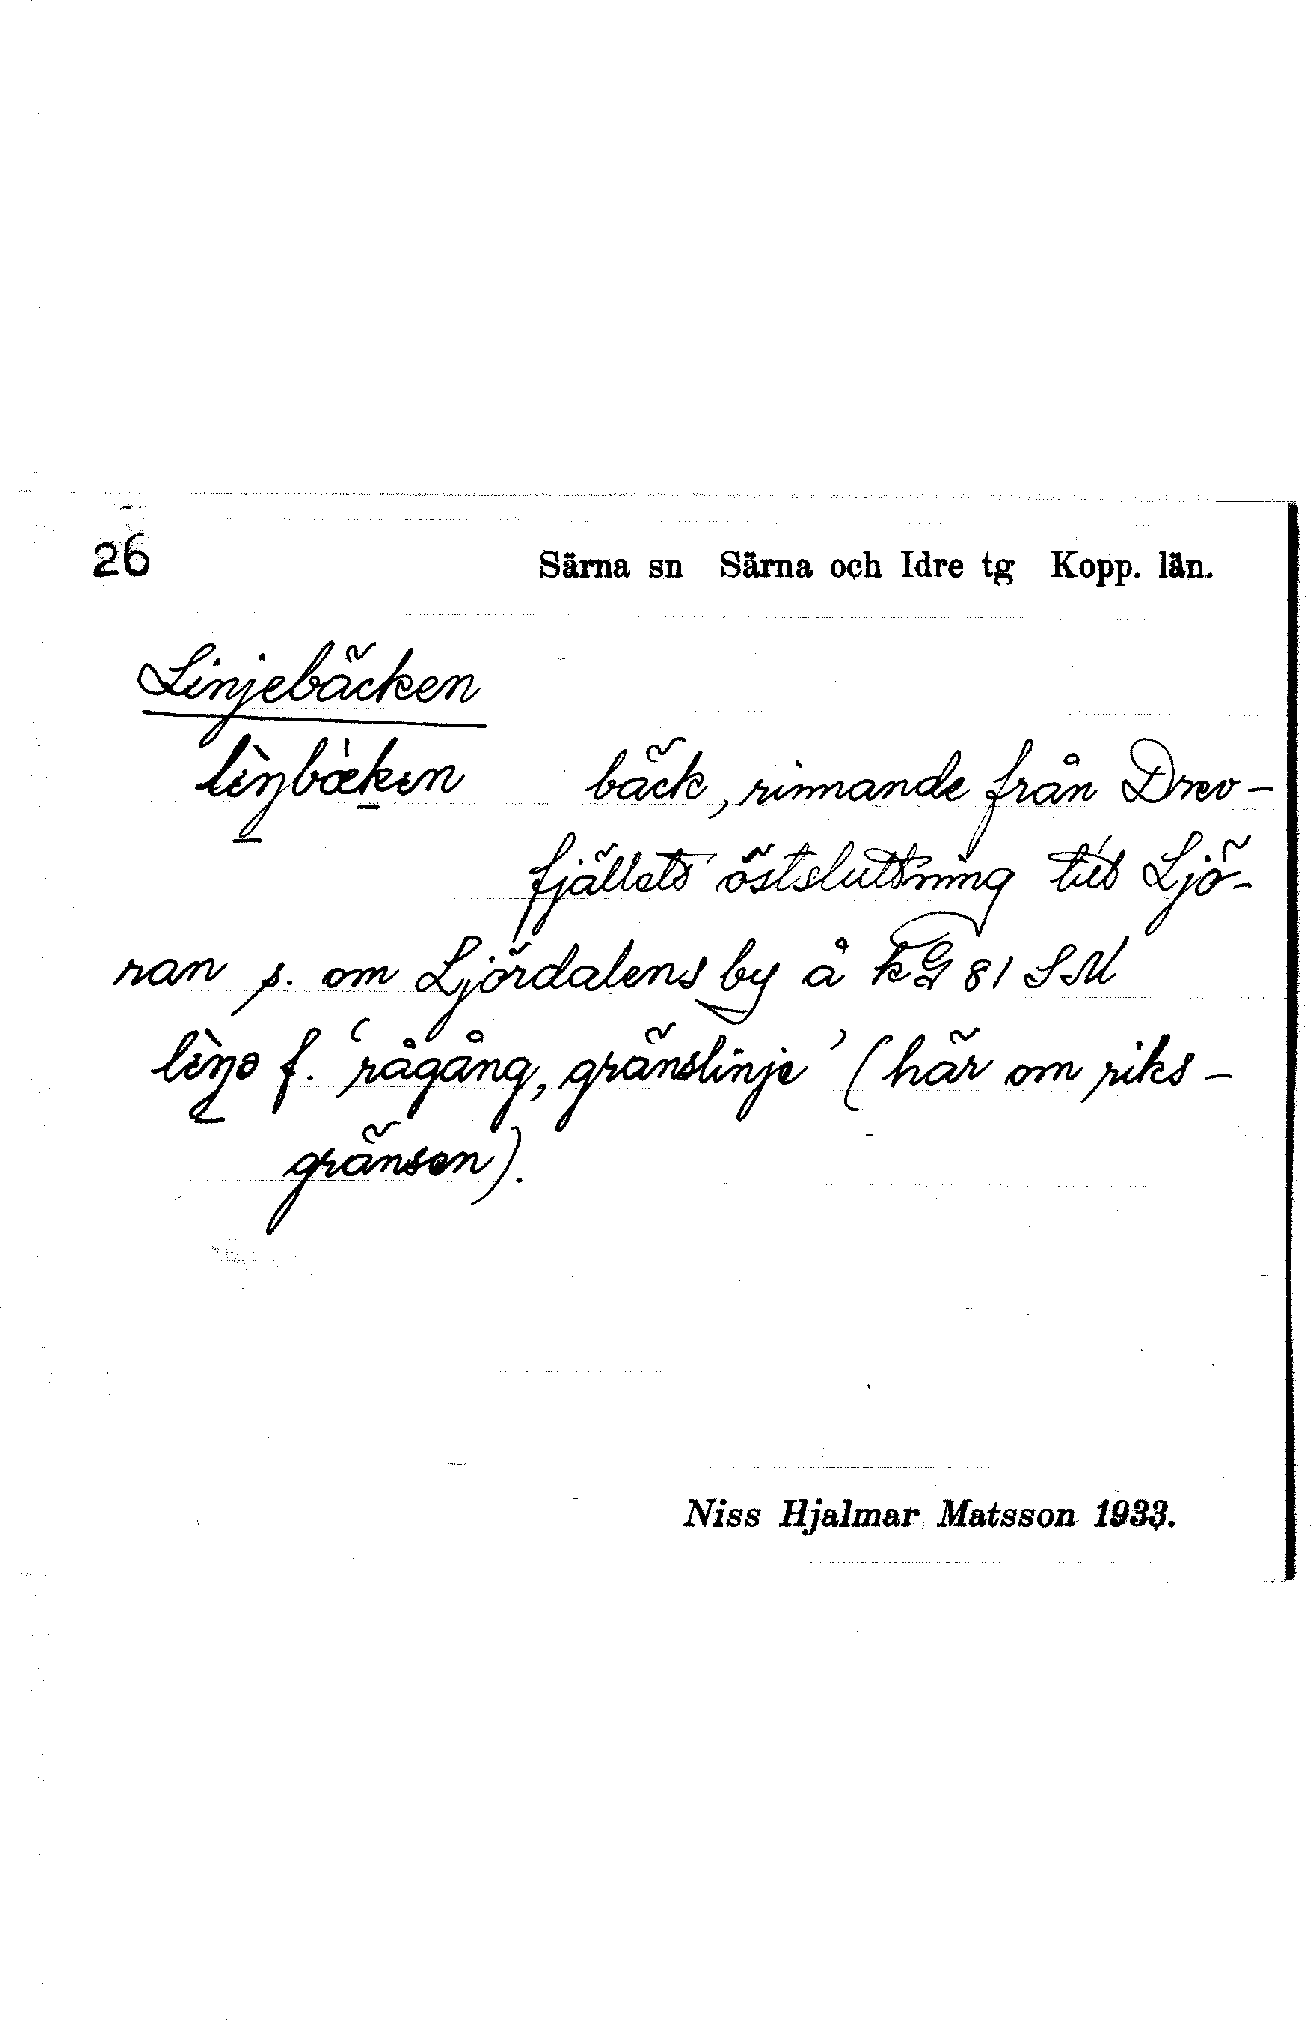 26
Särna sn Särna och Idre tg Kopp. län.
Linjebäcken
lìŋbæ̀ken bäck, rinnande från Drev-
fjällets östsluttning till Ljö-
ran s. om Ljördalens by å kG 81 SM
lìŋə f. ‘rågång, gränslinje’ (här om riks-
gränsen).
Niss Hjalmar Matsson 1933.